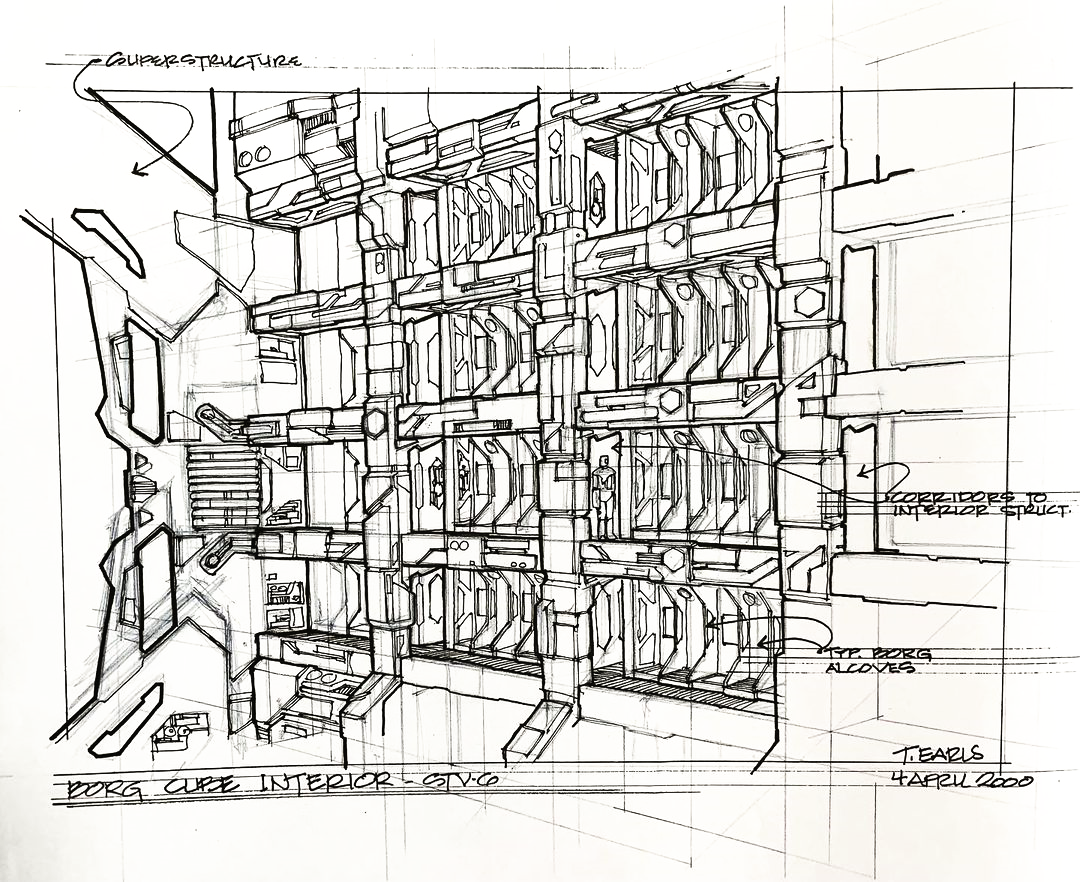 SUPERSTRUCTURE
CORRIDORS TO
INTERIOR STRUCT.
TYP. BORG
ALCOVES
T. EARLS
4 APRIL 2000
BORG CUBE INTERIOR - STV-6